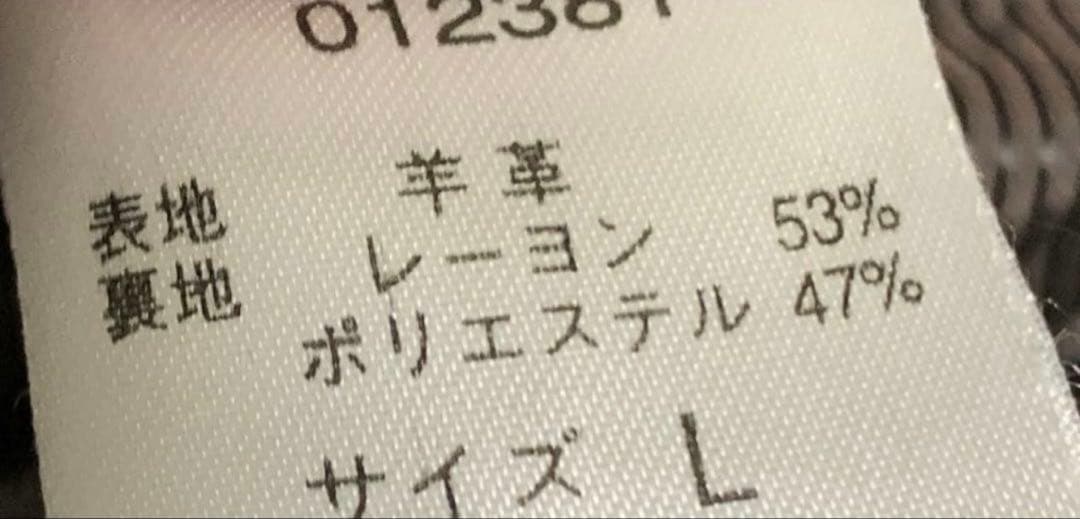 012381
表地 羊革
裏地 レーヨン 53%
ポリエステル 47%
サイズ L